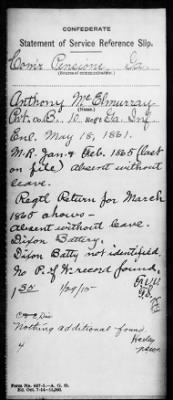 CONFEDERATE
Statement of Service Reference Slip.
Com'r Pensions, Ga.
(Source of communication.)
Anthony McElmurray
(Name.)
Pvt. Co. B., 10 Regt Ga. Inf.
Enl. May 18, 1861.
M.R. Jan & Feb. 1865 (last
on file) absent without
leave.
Regtl Return for March
1865 shows—
Absent without leave.
Dixon Battery.
Dixon Batty not identified.
No P. of W. record found.
1 50 1/29/15
Nothing additional found
4
Form No. 497-3.—A. G. O.
Ed. Oct. 7-14—15,000.